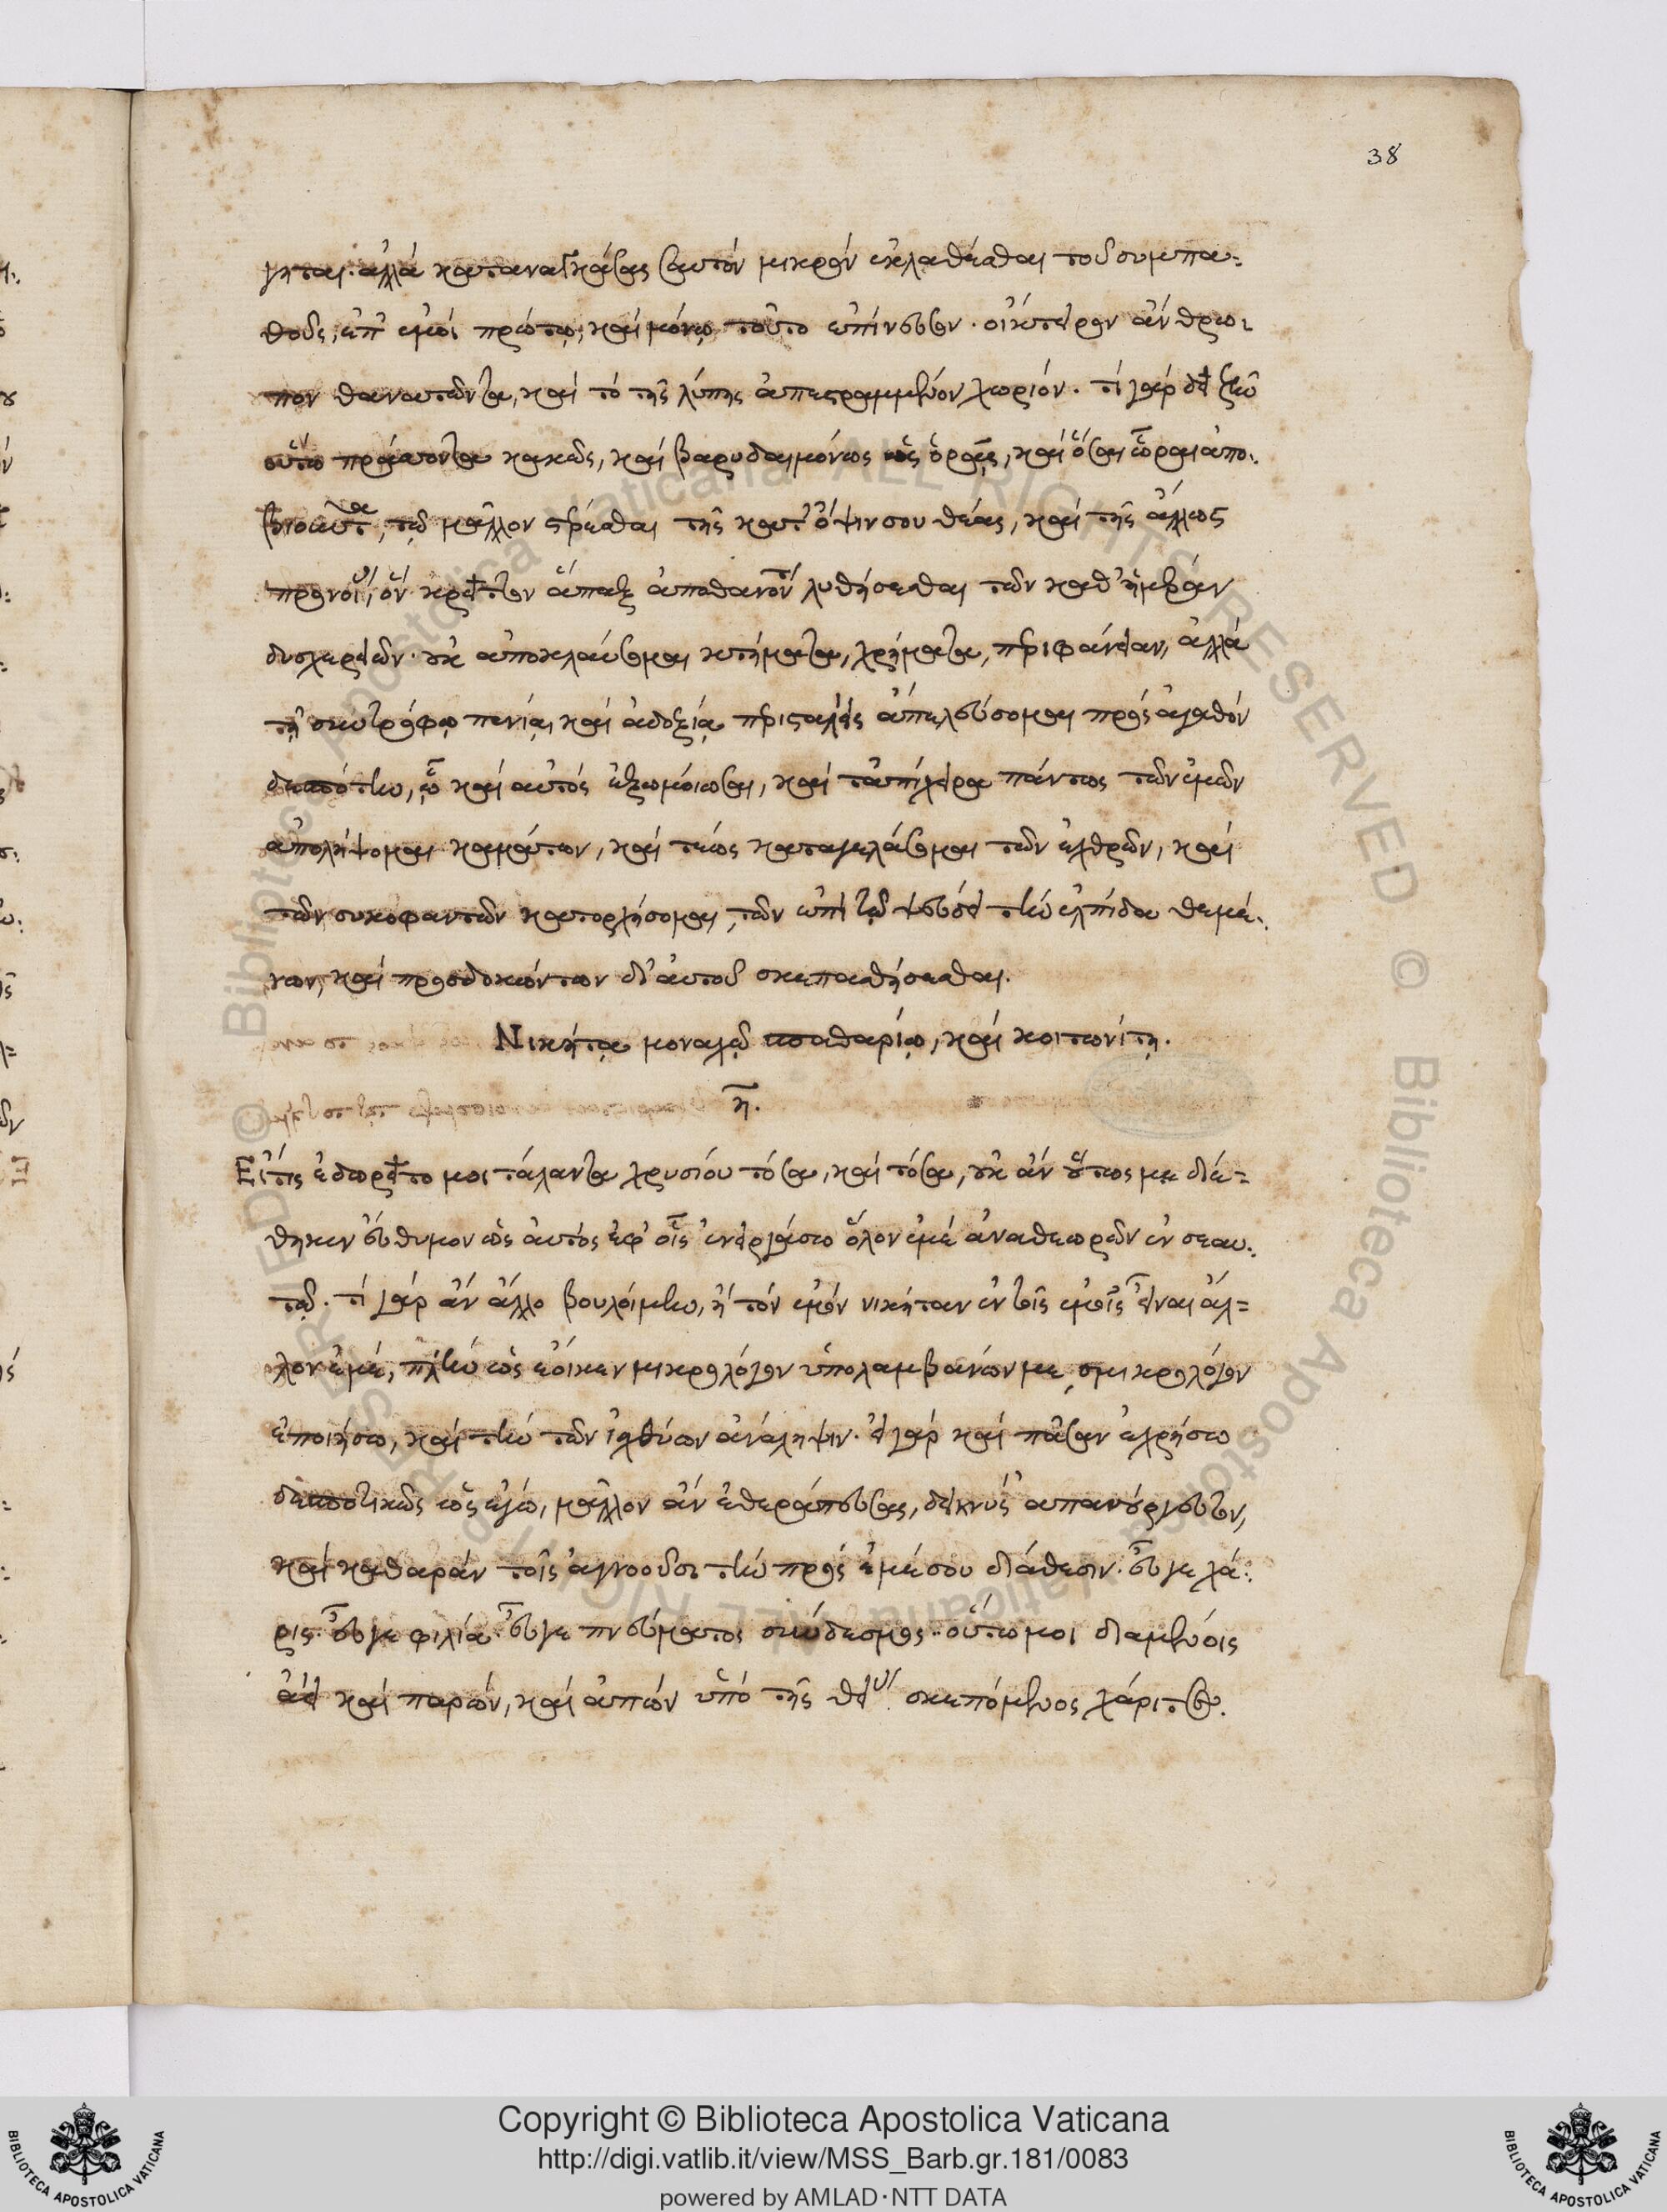 38
γηται. ἀλλὰ καταναγκάσας σαυτὸν μικρὸν ἐκλαθέσθαι τοῦ συμπα-
θοῦς, ἐπ' ἐμοὶ πρώτῳ, καὶ μόνῳ τοῦτο ἐπίνευσον. οἴκτειρον ἄνθρω-
πον θανατῶντα, καὶ τὸ τῆς λύπης ἀπεστραμμένον χωρίον. τί γὰρ δεῖ ζῆν
οὕτω πράττοντα κακῶς, καὶ βαρυδαιμόνως ὡς ὁρᾷς, καὶ ὅσαι ὧραι ἀπο-
βιοῦντα, τῷ μᾶλλον στέρεσθαι τῆς κατ' ὄψιν σου θέας, καὶ τῆς ἄλλως
προνοίας, ὃν κρεῖττον ἅπαξ ἀποθανόντα λυθήσεσθαι τῶν καθ' ἡμέραν
δυσχερειῶν. οὐκ ἀποκλαύσομαι κτήματα, χρήματα, περιφάνειαν, ἀλλὰ
τῇ συντρόφῳ πενίᾳ, καὶ ἀδοξίᾳ περισταλεὶς ἀπελεύσομαι πρὸς ἀγαθὸν
δεσπότην, ᾧ καὶ αὐτὸς ἐξωμοίωσαι, καὶ τἀπίχειρα πάντως τῶν ἐμῶν
ἀπολήψομαι καμάτων, καὶ τέως καταγελάσομαι τῶν ἐχθρῶν, καὶ
τῶν συκοφαντῶν κατορχήσομαι, τῶν ἐπὶ τῷ ψεύδει τὴν ἐλπίδα θεμέ-
νων, καὶ προσδοκώντων δι' αὐτοῦ σκεπασθήσεσθαι.
Νικήτᾳ μοναχῷ σπαθαρίῳ, καὶ κοιτωνίτῃ.
η.
Εἴ τις ἐδωρεῖτο μοι τάλαντα χρυσίου τόσα, καὶ τόσα, οὐκ ἂν οὕτως με διέ-
θηκεν εὔθυμον ὡς αὐτὸς ἐφ' οἷς ἐνειργάσω ὅλον ἐμὲ ἀναθεωρῶν ἐν σεαυ-
τῷ. τί γὰρ ἂν ἄλλο βουλοίμην, ἢ τὸν ἐμὸν νικήταν ἐν τοῖς ἐμοῖς εἶναι ἄλ-
λον ἐμέ, πλὴν ὡς ἔοικεν μικρολόγον ὑπολαμβάνων με, σμικρολόγον
ἐποιήσω, καὶ τὴν τῶν ἰχθύων ἀνάληψιν. εἰ γὰρ καὶ πᾶσαν ἐχρήσω
δεσποτικῶς ὡς ἐγώ, μᾶλλον ἂν ἐθεράπευσας, δεικνὺς ἀπανούργευτον,
καὶ καθαρὰν τοῖς ἀγνοοῦσι τὴν πρὸς ἐμέ σου διάθεσιν. εὖγε χά-
ρις. εὖγε φιλία. εὖγε πνεύματος σύνδεσμος. οὕτω μοι διαμένοις
ἀεὶ καὶ παρών, καὶ ἀπὼν ὑπὸ τῆς θείας σκεπόμενος χάριτος.
Copyright © Biblioteca Apostolica Vaticana
http://digi.vatlib.it/view/MSS_Barb.gr.181/0083
powered by AMLAD·NTT DATA